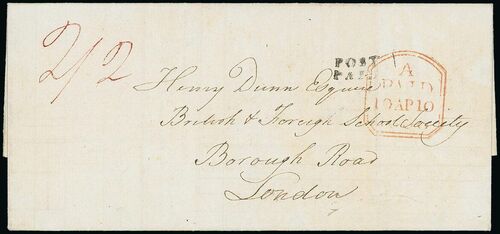 2/2
POST
PAID
A
PAID
10AP10
Henry Dunn Esquire
British & Foreign School Society
Borough Road
London